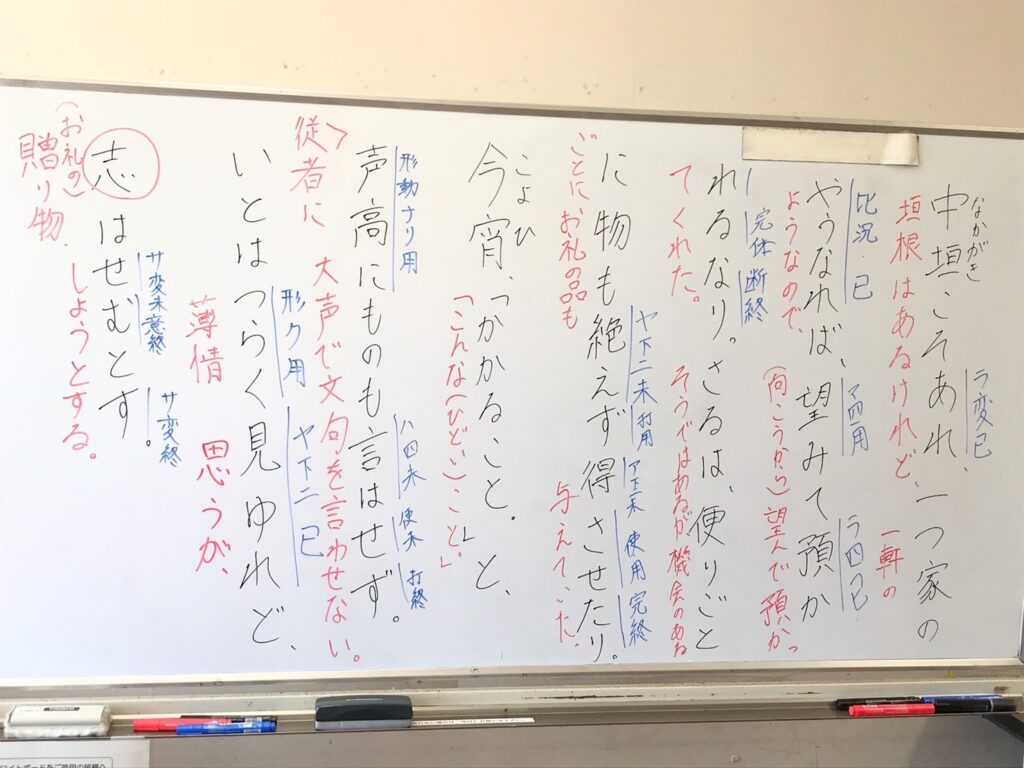 なかがき
中垣こそあれ、一つ家の
ラ変已
垣根はあるけれど、一軒の
やうなれば、望みて預か
比況・已 マ四用 ラ四已
ようなので、(向こうから)望んで預かっ
れるなり。さるは、便りごと
完体 断終
てくれた。そうではあるが機会のある
に物も絶えず得させたり。
ヤ下二未 打用 ア下二未 使用 完終
ごとにお礼の品も与えていた。
こよひ
今宵、「かかること。」と、
「こんな(ひどい)こと。」
声高にものも言はせず。
形動ナリ用 ハ四未 使未 打終
従者に大声で文句を言わせない。
いとはつらく見ゆれど、
形ク用 ヤ下二已
薄情 思うが、
志はせむとす。
サ変未 意終 サ変終
(お礼の)
贈り物. しようとする。